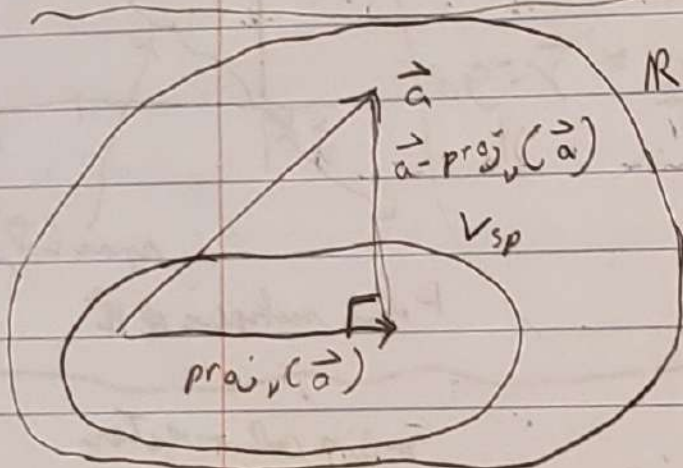 ℝ
a⃗
a⃗ - proj_v(a⃗)
V_sp
proj_v(a⃗)